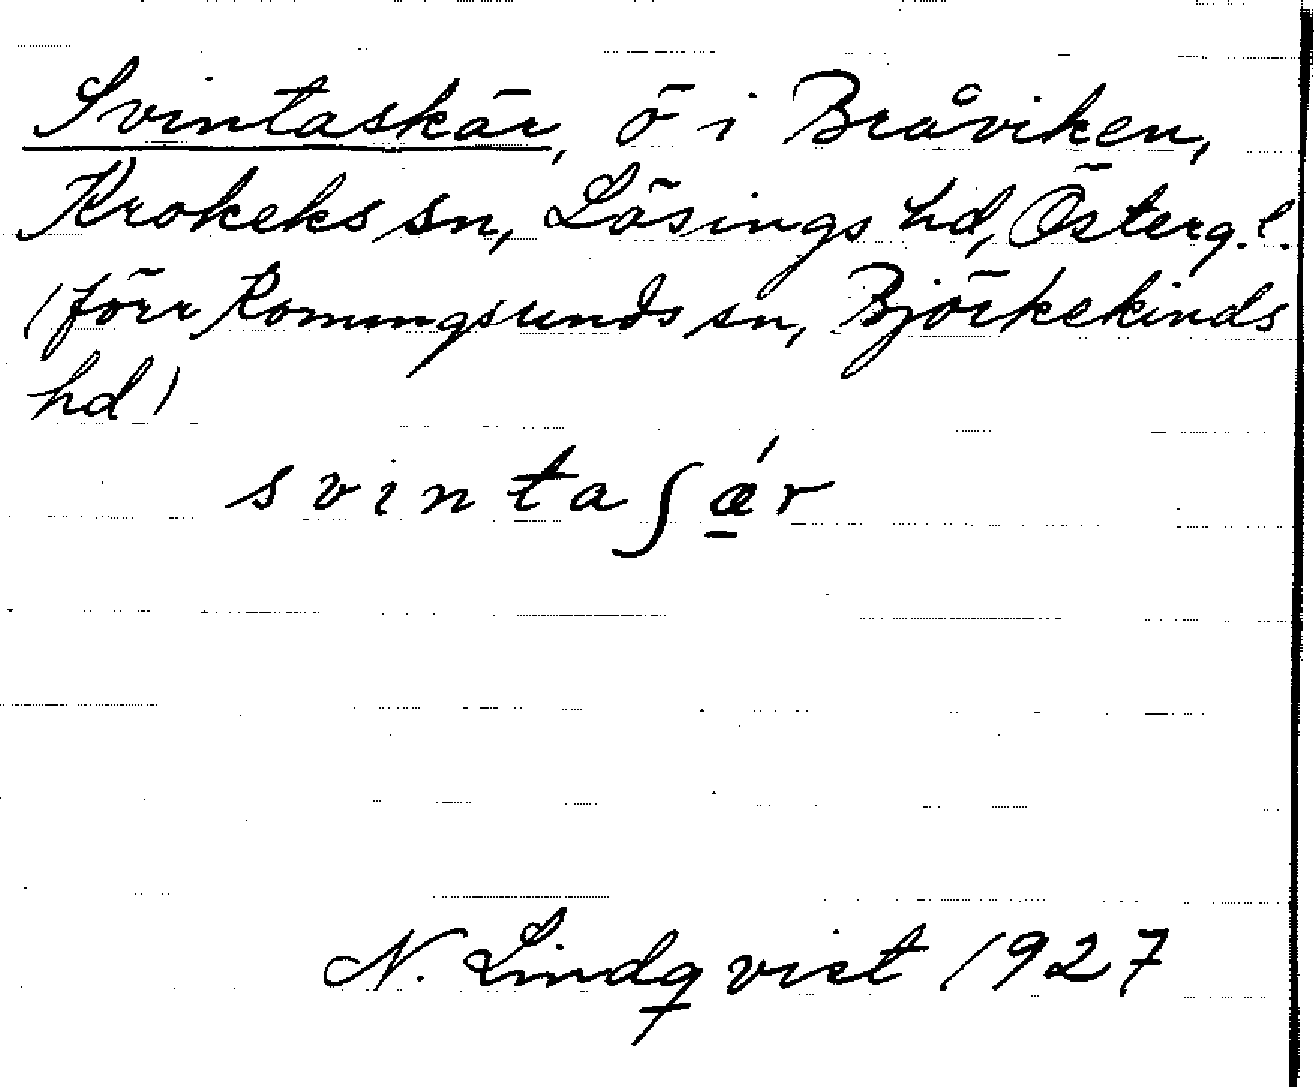 Svintaskär, ö i Bråviken,
Krokeks sn, Lösings hd, Österg.l.
(förr Konungsunds sn, Björkekinds
hd)
svintaʃǽ̠r
N. Lindqvist 1927